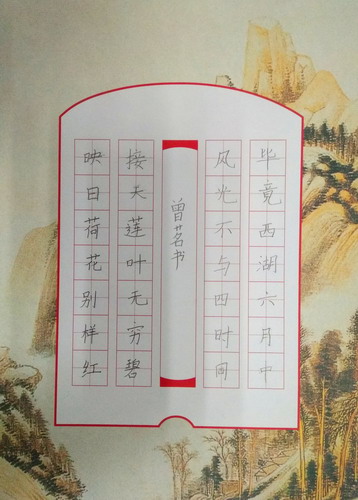 毕竟西湖六月中
风光不与四时同
曾茗书
接天莲叶无穷碧
映日荷花别样红